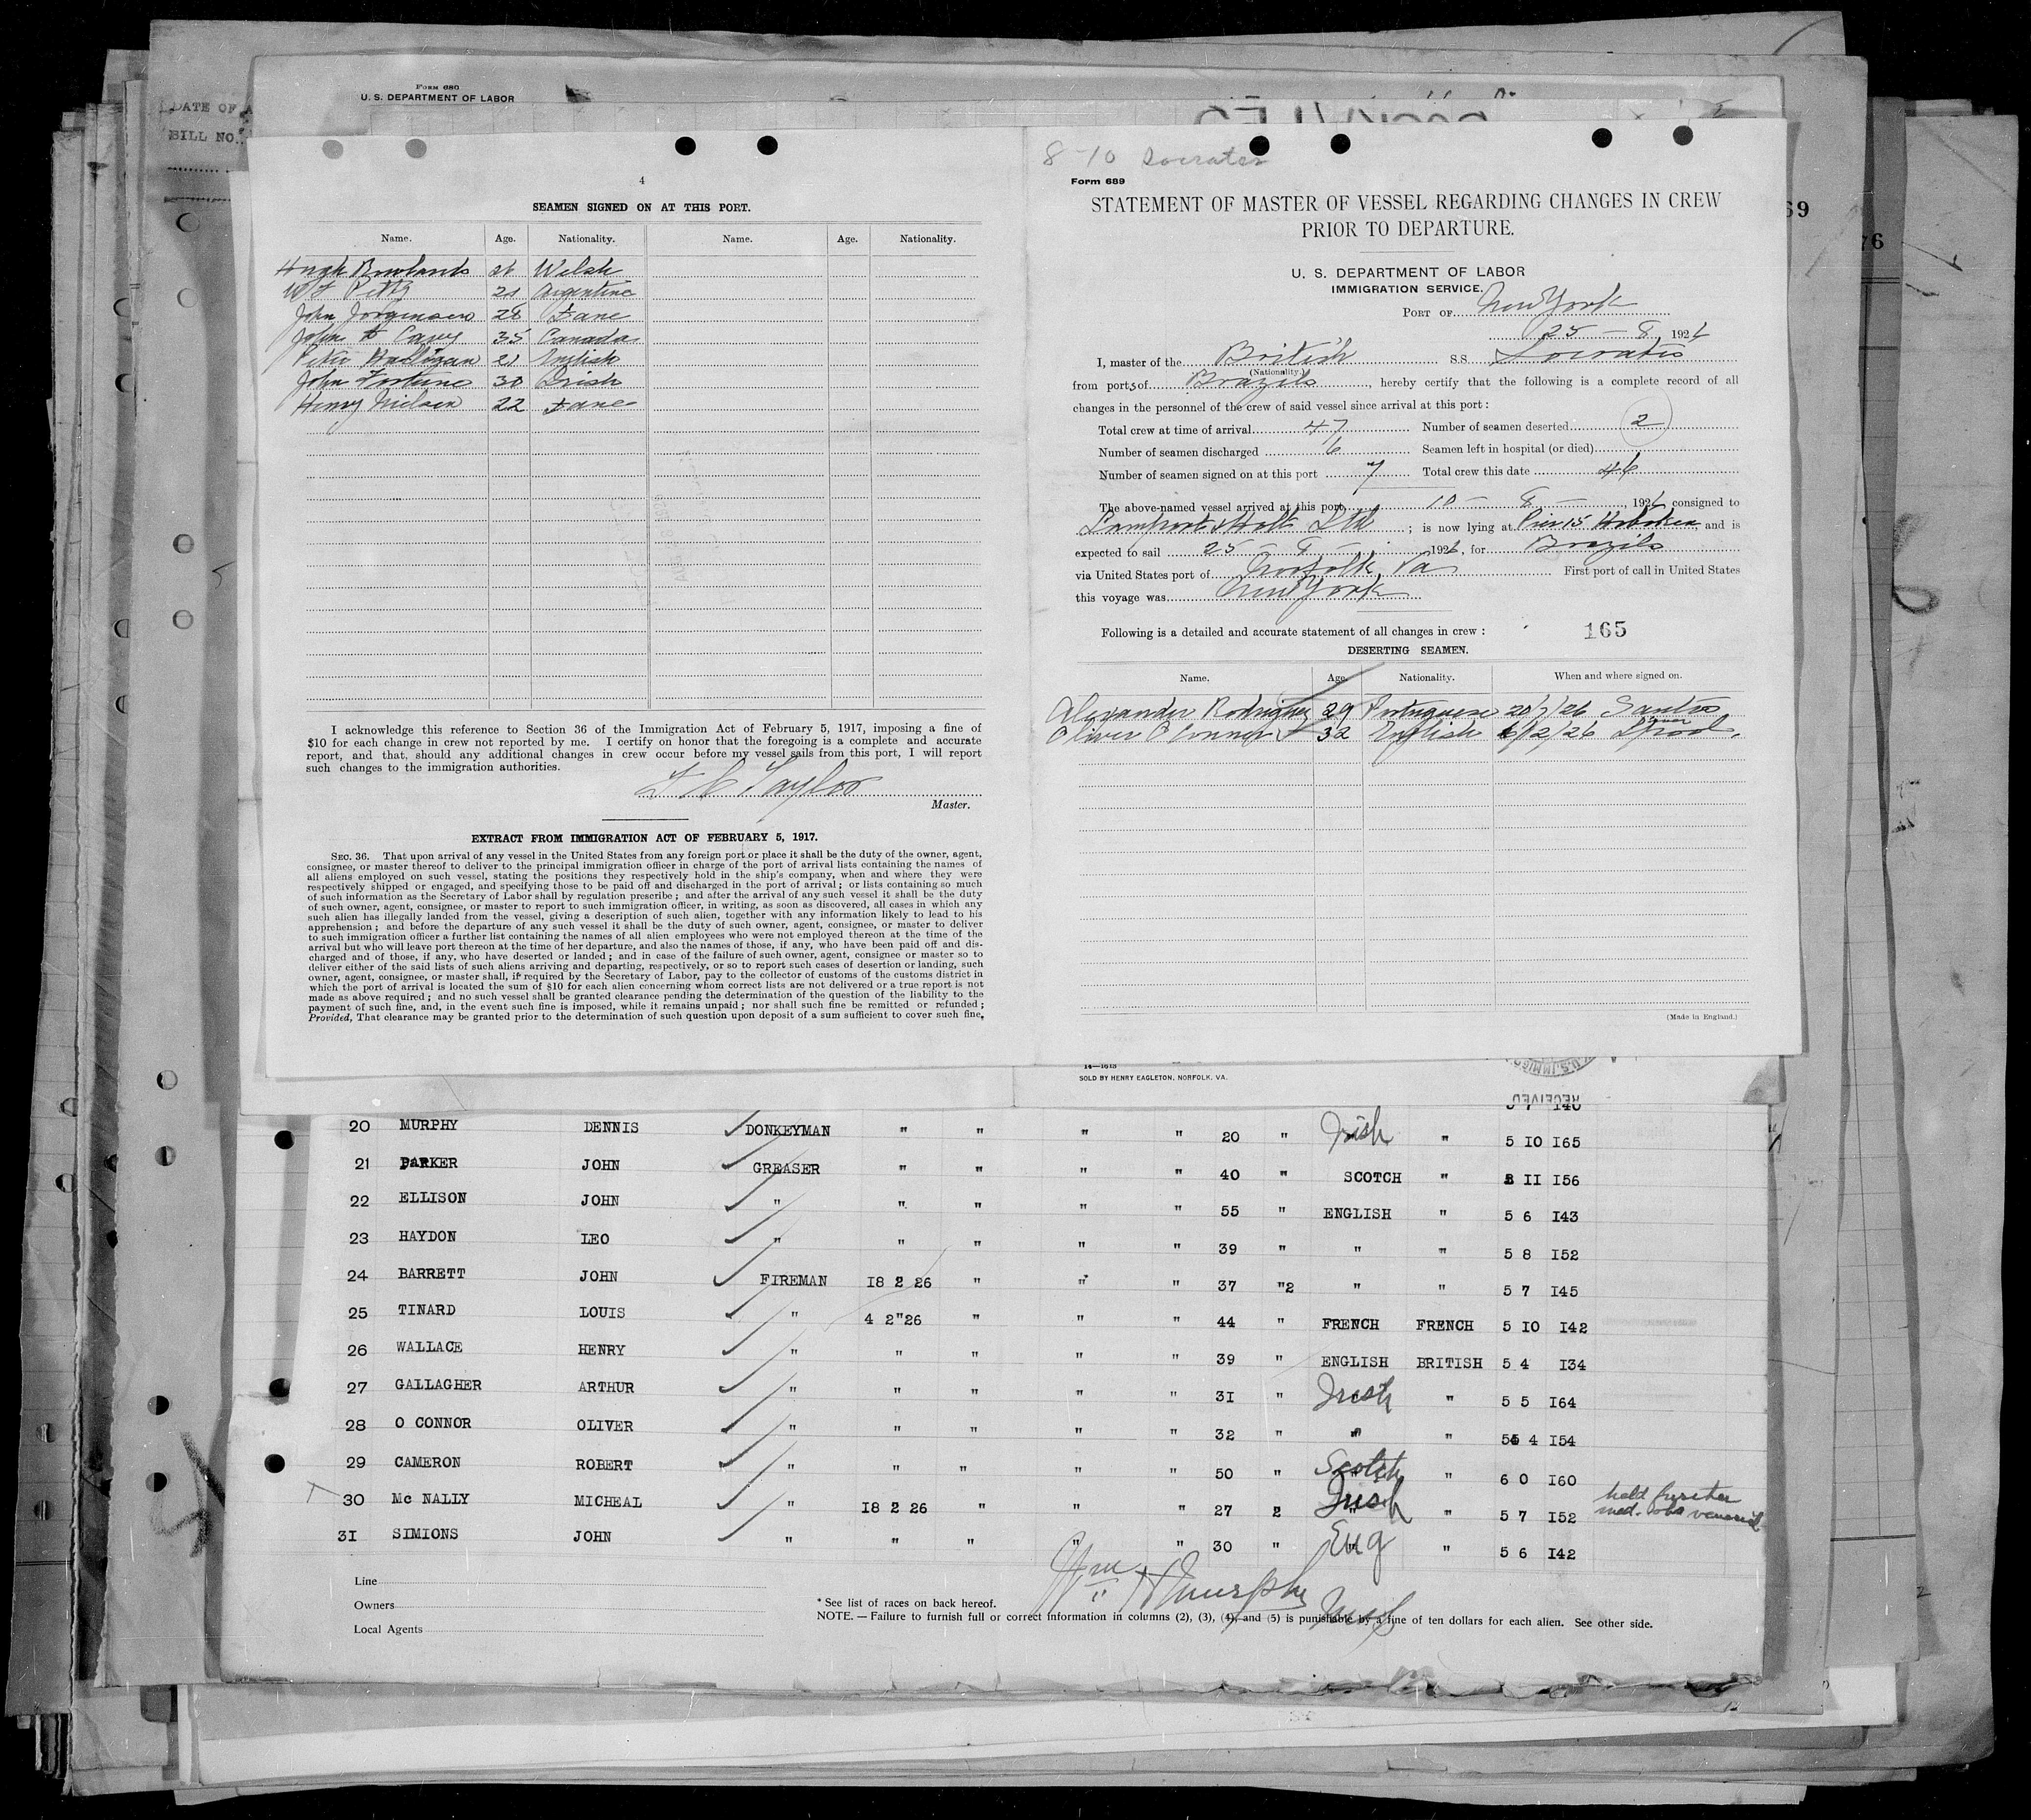 Form 680
U. S. DEPARTMENT OF LABOR
DATE OF A
BILL NO.
69
76
4
SEAMEN SIGNED ON AT THIS PORT.
Name. Age. Nationality. Name. Age. Nationality.
Hugh Rowlands Welsh
W J Petty 21 Argentine
John Jorgensen 28 Dane
John D Carey 35 Canada
Peter Halligan 21 English
John Fortune 30 Irish
Henry Nielsen 22 Dane
I acknowledge this reference to Section 36 of the Immigration Act of February 5, 1917, imposing a fine of
$10 for each change in crew not reported by me. I certify on honor that the foregoing is a complete and accurate
report, and that, should any additional changes in crew occur before my vessel sails from this port, I will report
such changes to the immigration authorities.
Taylor
Master.
EXTRACT FROM IMMIGRATION ACT OF FEBRUARY 5, 1917.
SEC. 36. That upon arrival of any vessel in the United States from any foreign port or place it shall be the duty of the owner, agent,
consignee, or master thereof to deliver to the principal immigration officer in charge of the port of arrival lists containing the names of
all aliens employed on such vessel, stating the positions they respectively hold in the ship's company, when and where they were
respectively shipped or engaged, and specifying those to be paid off and discharged in the port of arrival; or lists containing so much
of such information as the Secretary of Labor shall by regulation prescribe; and after the arrival of any such vessel it shall be the duty
of such owner, agent, consignee, or master to report to such immigration officer, in writing, as soon as discovered, all cases in which any
such alien has illegally landed from the vessel, giving a description of such alien, together with any information likely to lead to his
apprehension; and before the departure of any such vessel it shall be the duty of such owner, agent, consignee, or master to deliver
to such immigration officer a further list containing the names of all alien employees who were not employed thereon at the time of the
arrival but who will leave port thereon at the time of her departure, and also the names of those, if any, who have been paid off and dis-
charged and of those, if any, who have deserted or landed; and in case of the failure of such owner, agent, consignee or master so to
deliver either of the said lists of such aliens arriving and departing, respectively, or so to report such cases of desertion or landing, such
owner, agent, consignee, or master shall, if required by the Secretary of Labor, pay to the collector of customs of the customs district in
which the port of arrival is located the sum of $10 for each alien concerning whom correct lists are not delivered or a true report is not
made as above required; and no such vessel shall be granted clearance pending the determination of the question of the liability to the
payment of such fine, and, in the event such fine is imposed, while it remains unpaid; nor shall such fine be remitted or refunded;
Provided, That clearance may be granted prior to the determination of such question upon deposit of a sum sufficient to cover such fine,
8-10 Socrates
Form 689
STATEMENT OF MASTER OF VESSEL REGARDING CHANGES IN CREW
PRIOR TO DEPARTURE.
U. S. DEPARTMENT OF LABOR
IMMIGRATION SERVICE.
PORT OF New York
25 - 8 1926
I, master of the British S.S. Socrates
(Nationality.)
from ports of Brazils, hereby certify that the following is a complete record of all
changes in the personnel of the crew of said vessel since arrival at this port:
Total crew at time of arrival 47 Number of seamen deserted 2
Number of seamen discharged 6 Seamen left in hospital (or died)
Number of seamen signed on at this port 7 Total crew this date 46
The above-named vessel arrived at this port 10 - 8 - 1926 consigned to
Lamport & Holt Ltd; is now lying at Pier 15 Hoboken, and is
expected to sail 25 - 8 - 1926, for Brazils
via United States port of Norfolk, Va First port of call in United States
this voyage was New York
Following is a detailed and accurate statement of all changes in crew: 165
DESERTING SEAMEN.
Name. Age. Nationality. When and where signed on.
Alexander Rodriguez 29 Portuguese 20/7/26 Santos
Oliver O Connor 32 English 6/2/26 L'pool.
(Made in England.)
14—1615
SOLD BY HENRY EAGLETON, NORFOLK, VA.
RECEIVED
20 MURPHY DENNIS DONKEYMAN " " " " 20 " Irish " 5 10 165
21 PARKER JOHN GREASER " " " " 40 " SCOTCH " 5 11 156
22 ELLISON JOHN " " " " " 55 " ENGLISH " 5 6 143
23 HAYDON LEO " " " " " 39 " " " 5 8 152
24 BARRETT JOHN FIREMAN 18 2 26 " " " 37 "2 " " 5 7 145
25 TINARD LOUIS " 4 2"26 " " 44 " FRENCH FRENCH 5 10 142
26 WALLACE HENRY " " " " " 39 " ENGLISH BRITISH 5 4 134
27 GALLAGHER ARTHUR " " " " " 31 " Irish " 5 5 164
28 O CONNOR OLIVER " " " " " 32 " " " 5 4 154
29 CAMERON ROBERT " " " " " 50 " Scotch " 6 0 160
30 Mc NALLY MICHEAL " 18 2 26 " " " 27 2 Irish " 5 7 152 held further med. obs venereal
31 SIMIONS JOHN " " " " " 30 " Eng " 5 6 142
Wm H Murphy Irish
Line
Owners
Local Agents
* See list of races on back hereof.
NOTE.—Failure to furnish full or correct information in columns (2), (3), (4), and (5) is punishable by a fine of ten dollars for each alien. See other side.